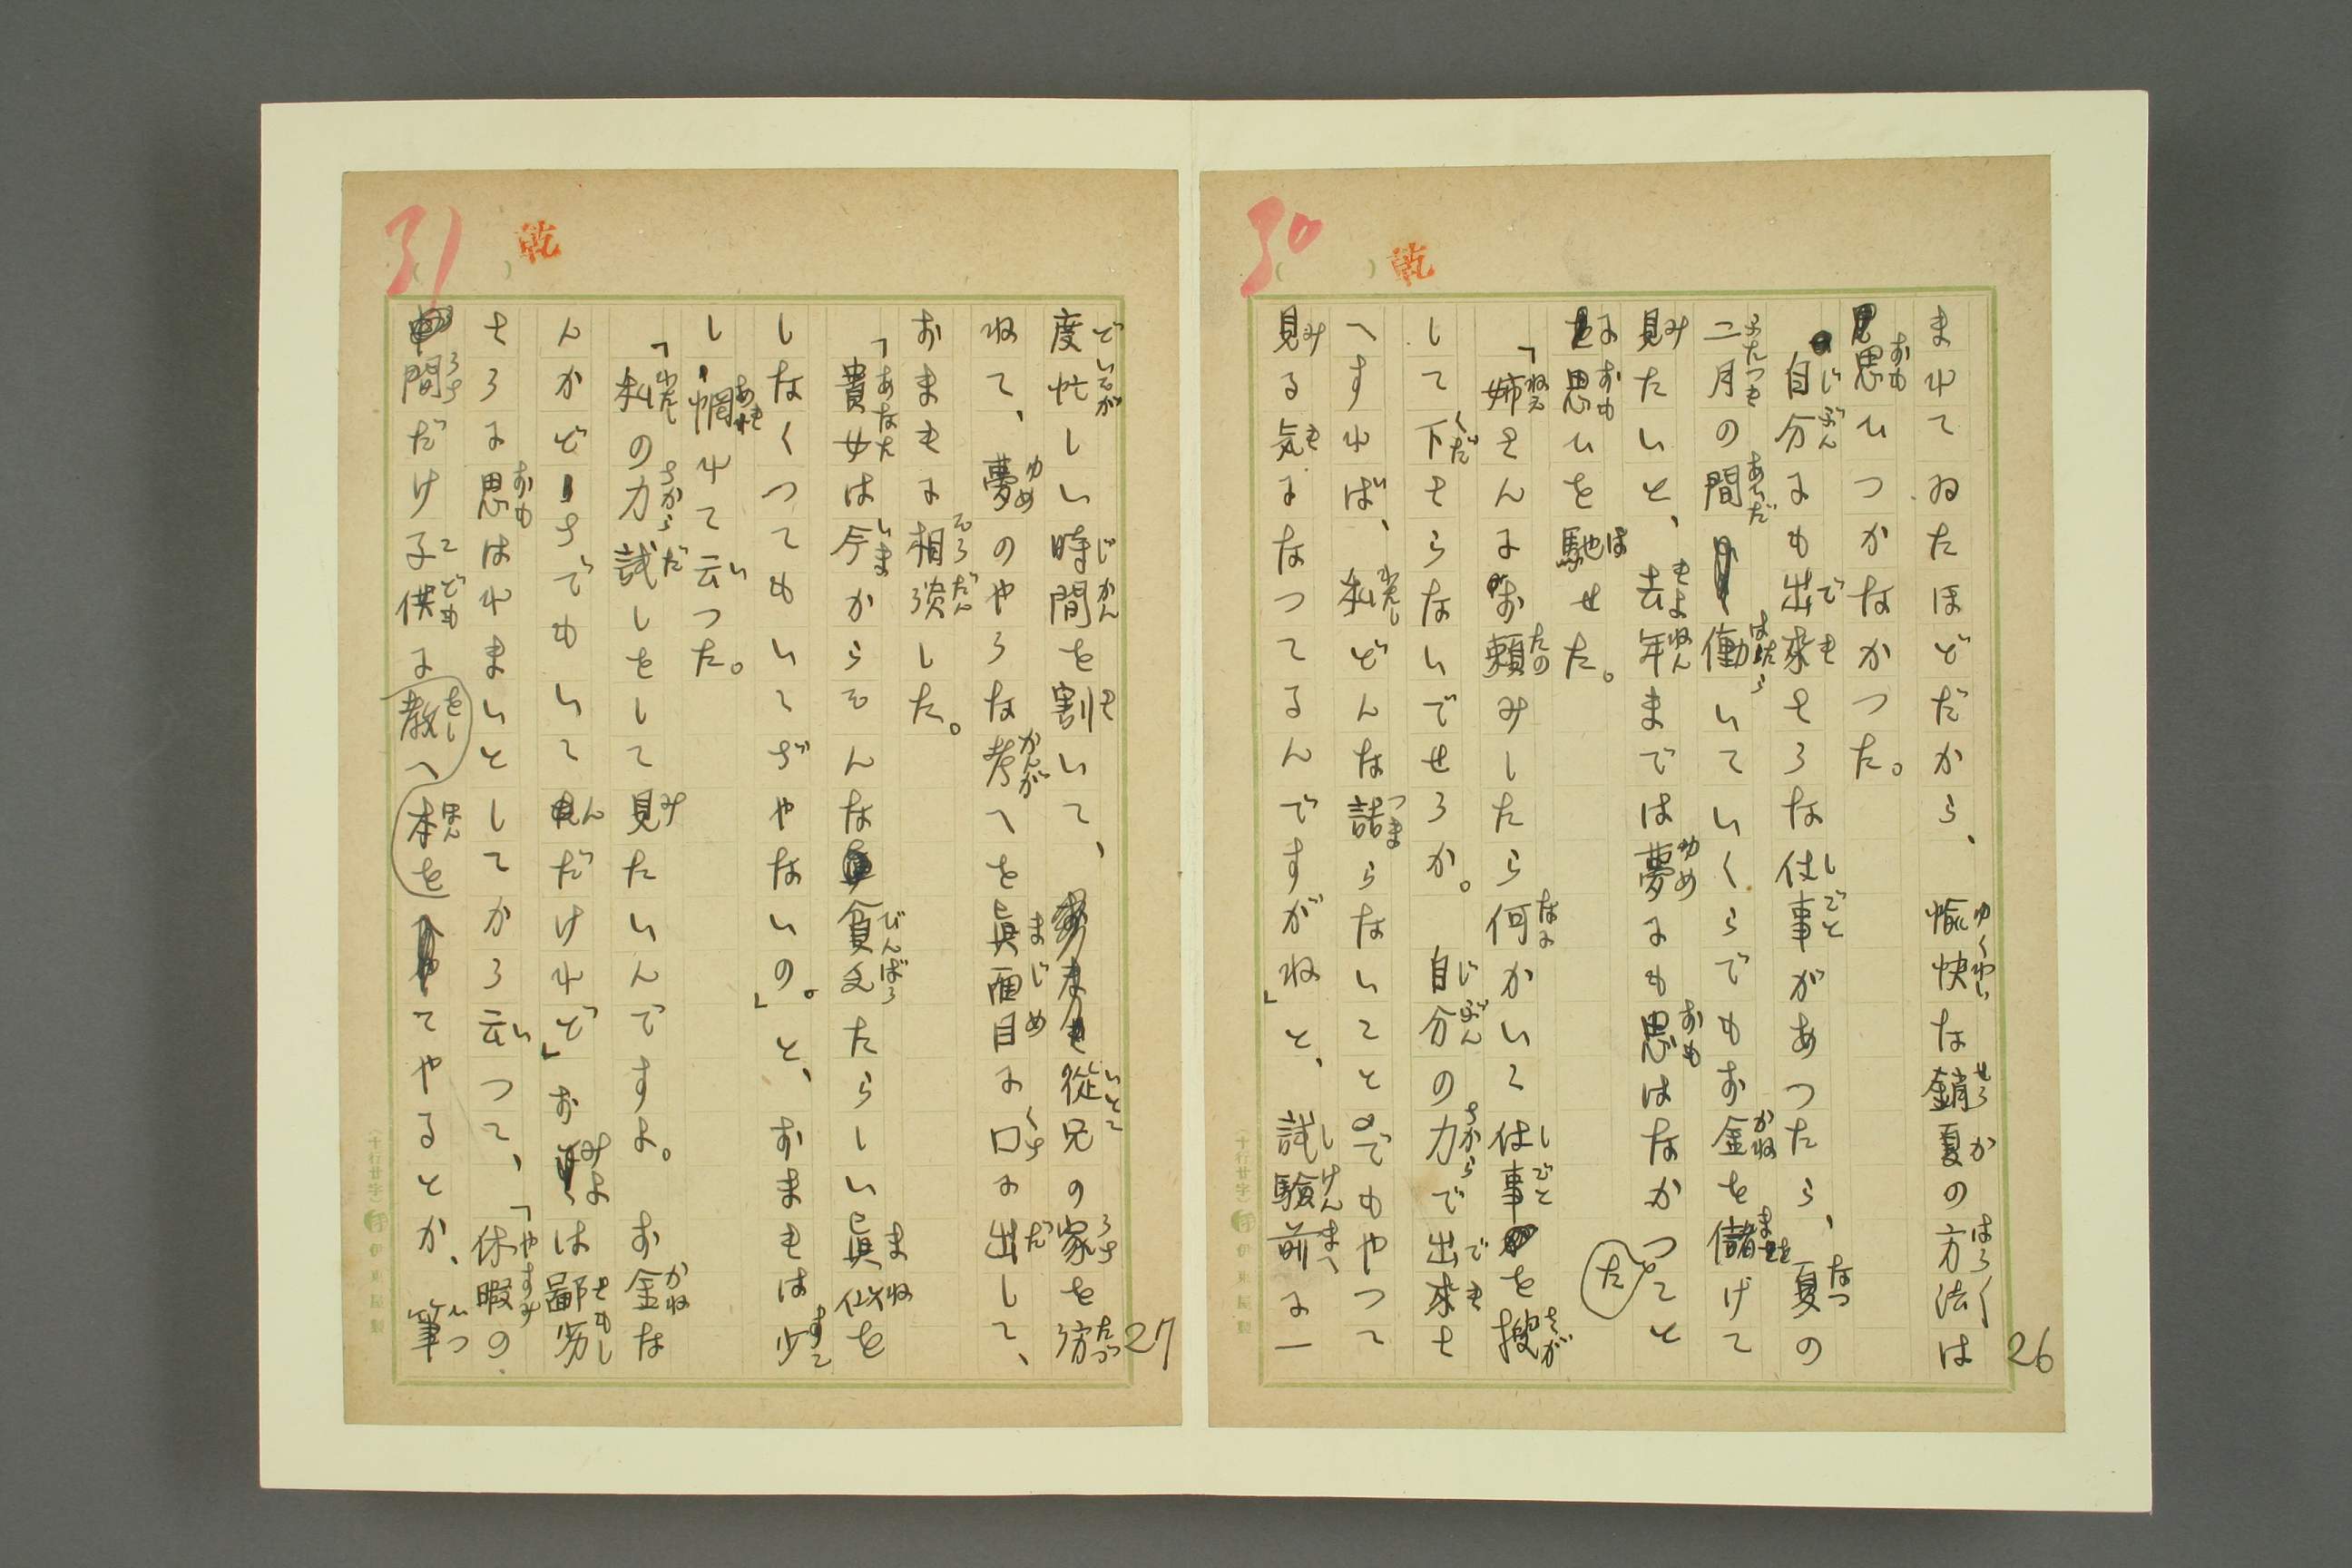 30
乾
26
まれてゐたほどだから、愉快な銷夏の方法は
思ひつかなかつた。
自分にも出来さうな仕事があつたら、夏の
二月の間働いていくらでもお金を儲けて
見たいと、去年までは夢にも思はなかつたこと
に思ひを馳せた。
「姉さんにお頼みしたら何かいい仕事を捜が
して下さらないでせうか。自分の力で出来さ
へすれば、私どんな詰らないことでもやつて
見る気になつてるんですがね」と、試験前に一
31
乾
27
度忙しい時間を割いて、従兄の家を訪
ねて、夢のやうな考へを眞面目に口に出して、
おまきに相談した。
「貴女は今からそんな貧乏たらしい眞似を
しなくつてもいいぢやないの。」と、おまきは少
し惘れて云つた。
「私の力試しをして見たいんですよ。お金な
んかどうでもいいんだけれど」おみよは鄙劣
さうに思はれまいとしてかう云つて、「休暇の
間だけ子供に教へ本をてやるとか、筆
(十行廿字)伊東屋製
(十行廿字)伊東屋製